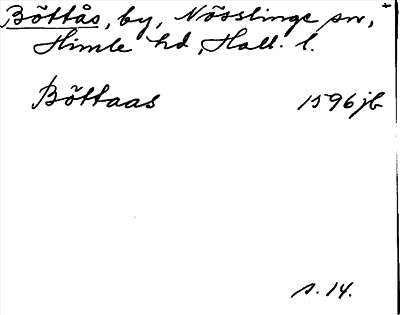 Böttås, by, Nösslinge sn,
Himle hd, Hall. l.
Böttaas 1596 jb
s. 14.